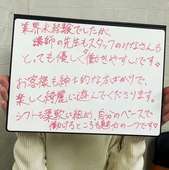 業界未経験でしたが、
講師の先生もスタッフのみなさんも
とっても優しく働きやすいです。
お客様も紳士的な方ばかりで、
楽しく綺麗に遊んでくださります。
シフトも柔軟に組め、自分のペースで
働けるところも魅力の一つです!